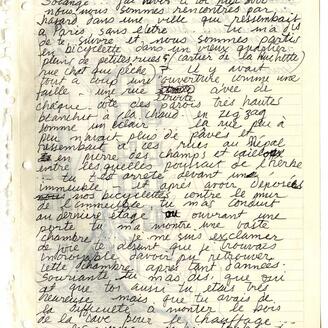 Solange.
nous nous sommes rencontrés par
hasard dans une ville qui ressemblait
à Paris sans l'être tu m'a dit
de te suivre et nous sommes partis
en bicyclette dans un vieux quartier
plein de petites rues (quartier de la huchette)
rue chat qui pêche) il y avait
tout à coup une ouverture comme une
faille - une rue étroite avec de
chaque côté des parois très hautes
blanchies à la chaux en zig zag
comme un éclair la rue peu à
peu n'avait plus de pavés et
ressemblait à ces rues au Népal
en pierre des champs et cailloux
entre lesquelles poussait de l'herbe
- tu t'es arrêté devant un
immeuble et après avoir déposés
nos bicyclettes contre le mur
de l'immeuble tu m'as conduit
au dernier étage ou ouvrant une
porte tu m'a montré une vaste
chambre je me suis exclamer
de joie te disant que je trouvais
incroyable d'avoir pu retrouver
cette chambre après tant d'années.
Souriant tu m'as dis que oui
et que toi aussi tu étais très
heureuse mais que tu avais de
la difficulté à monter le bois
de la cave pour le chauffage